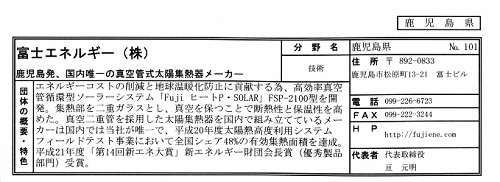 鹿児島県
富士エネルギー（株）
鹿児島発、国内唯一の真空管式太陽熱集熱器メーカー
分野名
技術
鹿児島県 No. 101
住所 〒 892-0833
鹿児島市松原町13-21 富士ビル
電話 099-226-6723
FAX 099-222-3244
HP http://fujiene.com
代表者 代表取締役
亘 元明
団体の概要・特色
エネルギーコストの削減と地球温暖化防止に貢献する為、高効率真空
管循環型ソーラーシステム「Fuji ヒートP・SOLAR」FSP-2100型を開
発。集熱部を二重ガラスとし、真空を保つことで断熱性と保温性を高
めた。真空二重管を採用した太陽集熱器を国内で組み立てているメー
カーは国内では当社が唯一で、平成20年度太陽熱高度利用システム
フィールドテスト事業において全国シェア48%の有効集熱面積を達成。
平成21年度「第14回新エネ大賞」新エネルギー財団会長賞（優秀製品
部門）受賞。